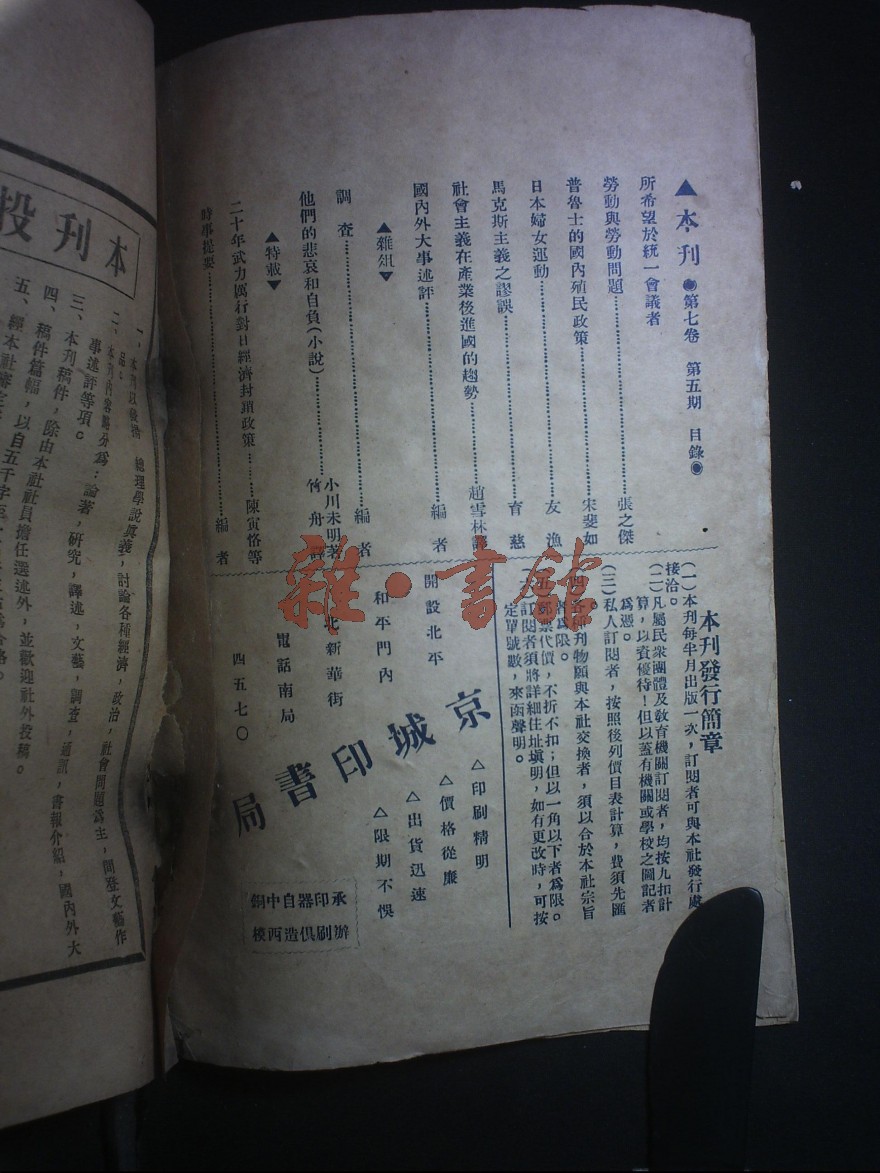 ▲本刊◉第七卷 第五期 目錄◉
所希望於統一會議者
勞動與勞動問題……張之傑
普魯士的國內殖民政策……宋斐如
日本婦女運動……友漁
馬克斯主義之謬誤……育慈
社會主義在產業後進國的趨勢……趙雪林譯
國內外大事述評……編者
▲雜俎▼
調查……編者
他們的悲哀和自負(小說)……小川未明著
竹舟譯
▲特載▼
二十年武力厲行對日經濟封鎖政策……陳寅恪等
時事提要……編者
本刊發行簡章
(一)本刊每半月出版一次,訂閱者可與本社發行處
接洽。
(二)凡屬民衆團體及敎育機關訂閱者,均按九扣計
算,以資優待!但以蓋有機關或學校之圖記者
爲憑。
(三)私人訂閱者,按照後列價目表計算,費須先匯
。
各種刊物願與本社交換者,須以合於本社宗旨
者爲限。
郵票代價,不折不扣;但以一角以下者爲限。
訂閱者須將詳細住址塡明,如有更改時,可按
定單號數,來函聲明。
開設北平
和平門內
北新華街
電話南局
四五七〇
京城印書局
△印刷精明
△價格從廉
△出貨迅速
△限期不悞
承印器自中銅
辦刷俱造西模
雜·書館
本刊投
一、本刊以發揚 總理學說眞義,討論各種經濟,政治,社會問題爲主,間登文藝作
品。
二、本刊內容略分爲:論著,研究,譯述,文藝,調查,通訊,書報介紹,國內外大
事述評等項。
三、本刊稿件,除由本社社員擔任選述外,並歡迎社外投稿。
四、稿件篇幅,以自五千字至
五、經本社審定